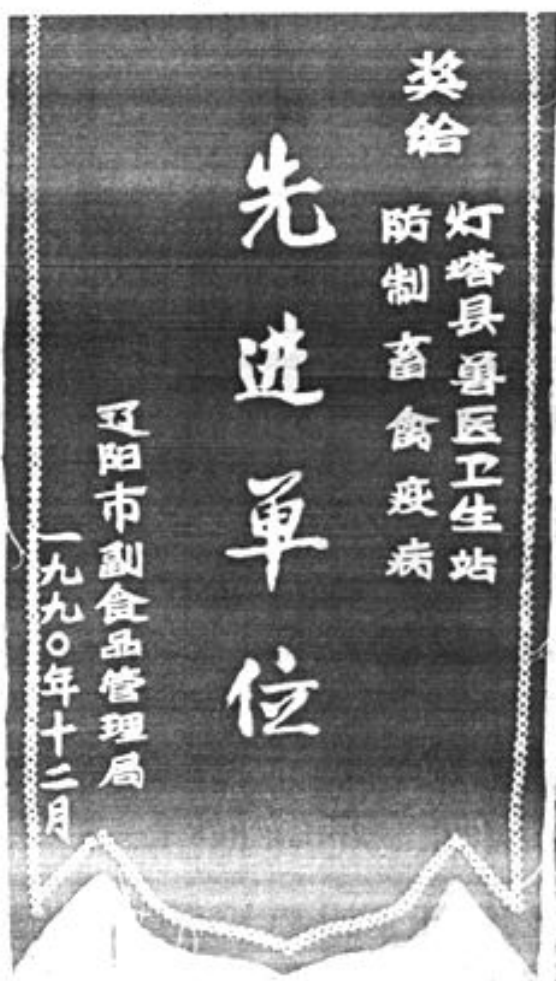 奖给
灯塔县兽医卫生站
防制畜禽疫病
先进单位
辽阳市副食品管理局
一九九〇年十二月